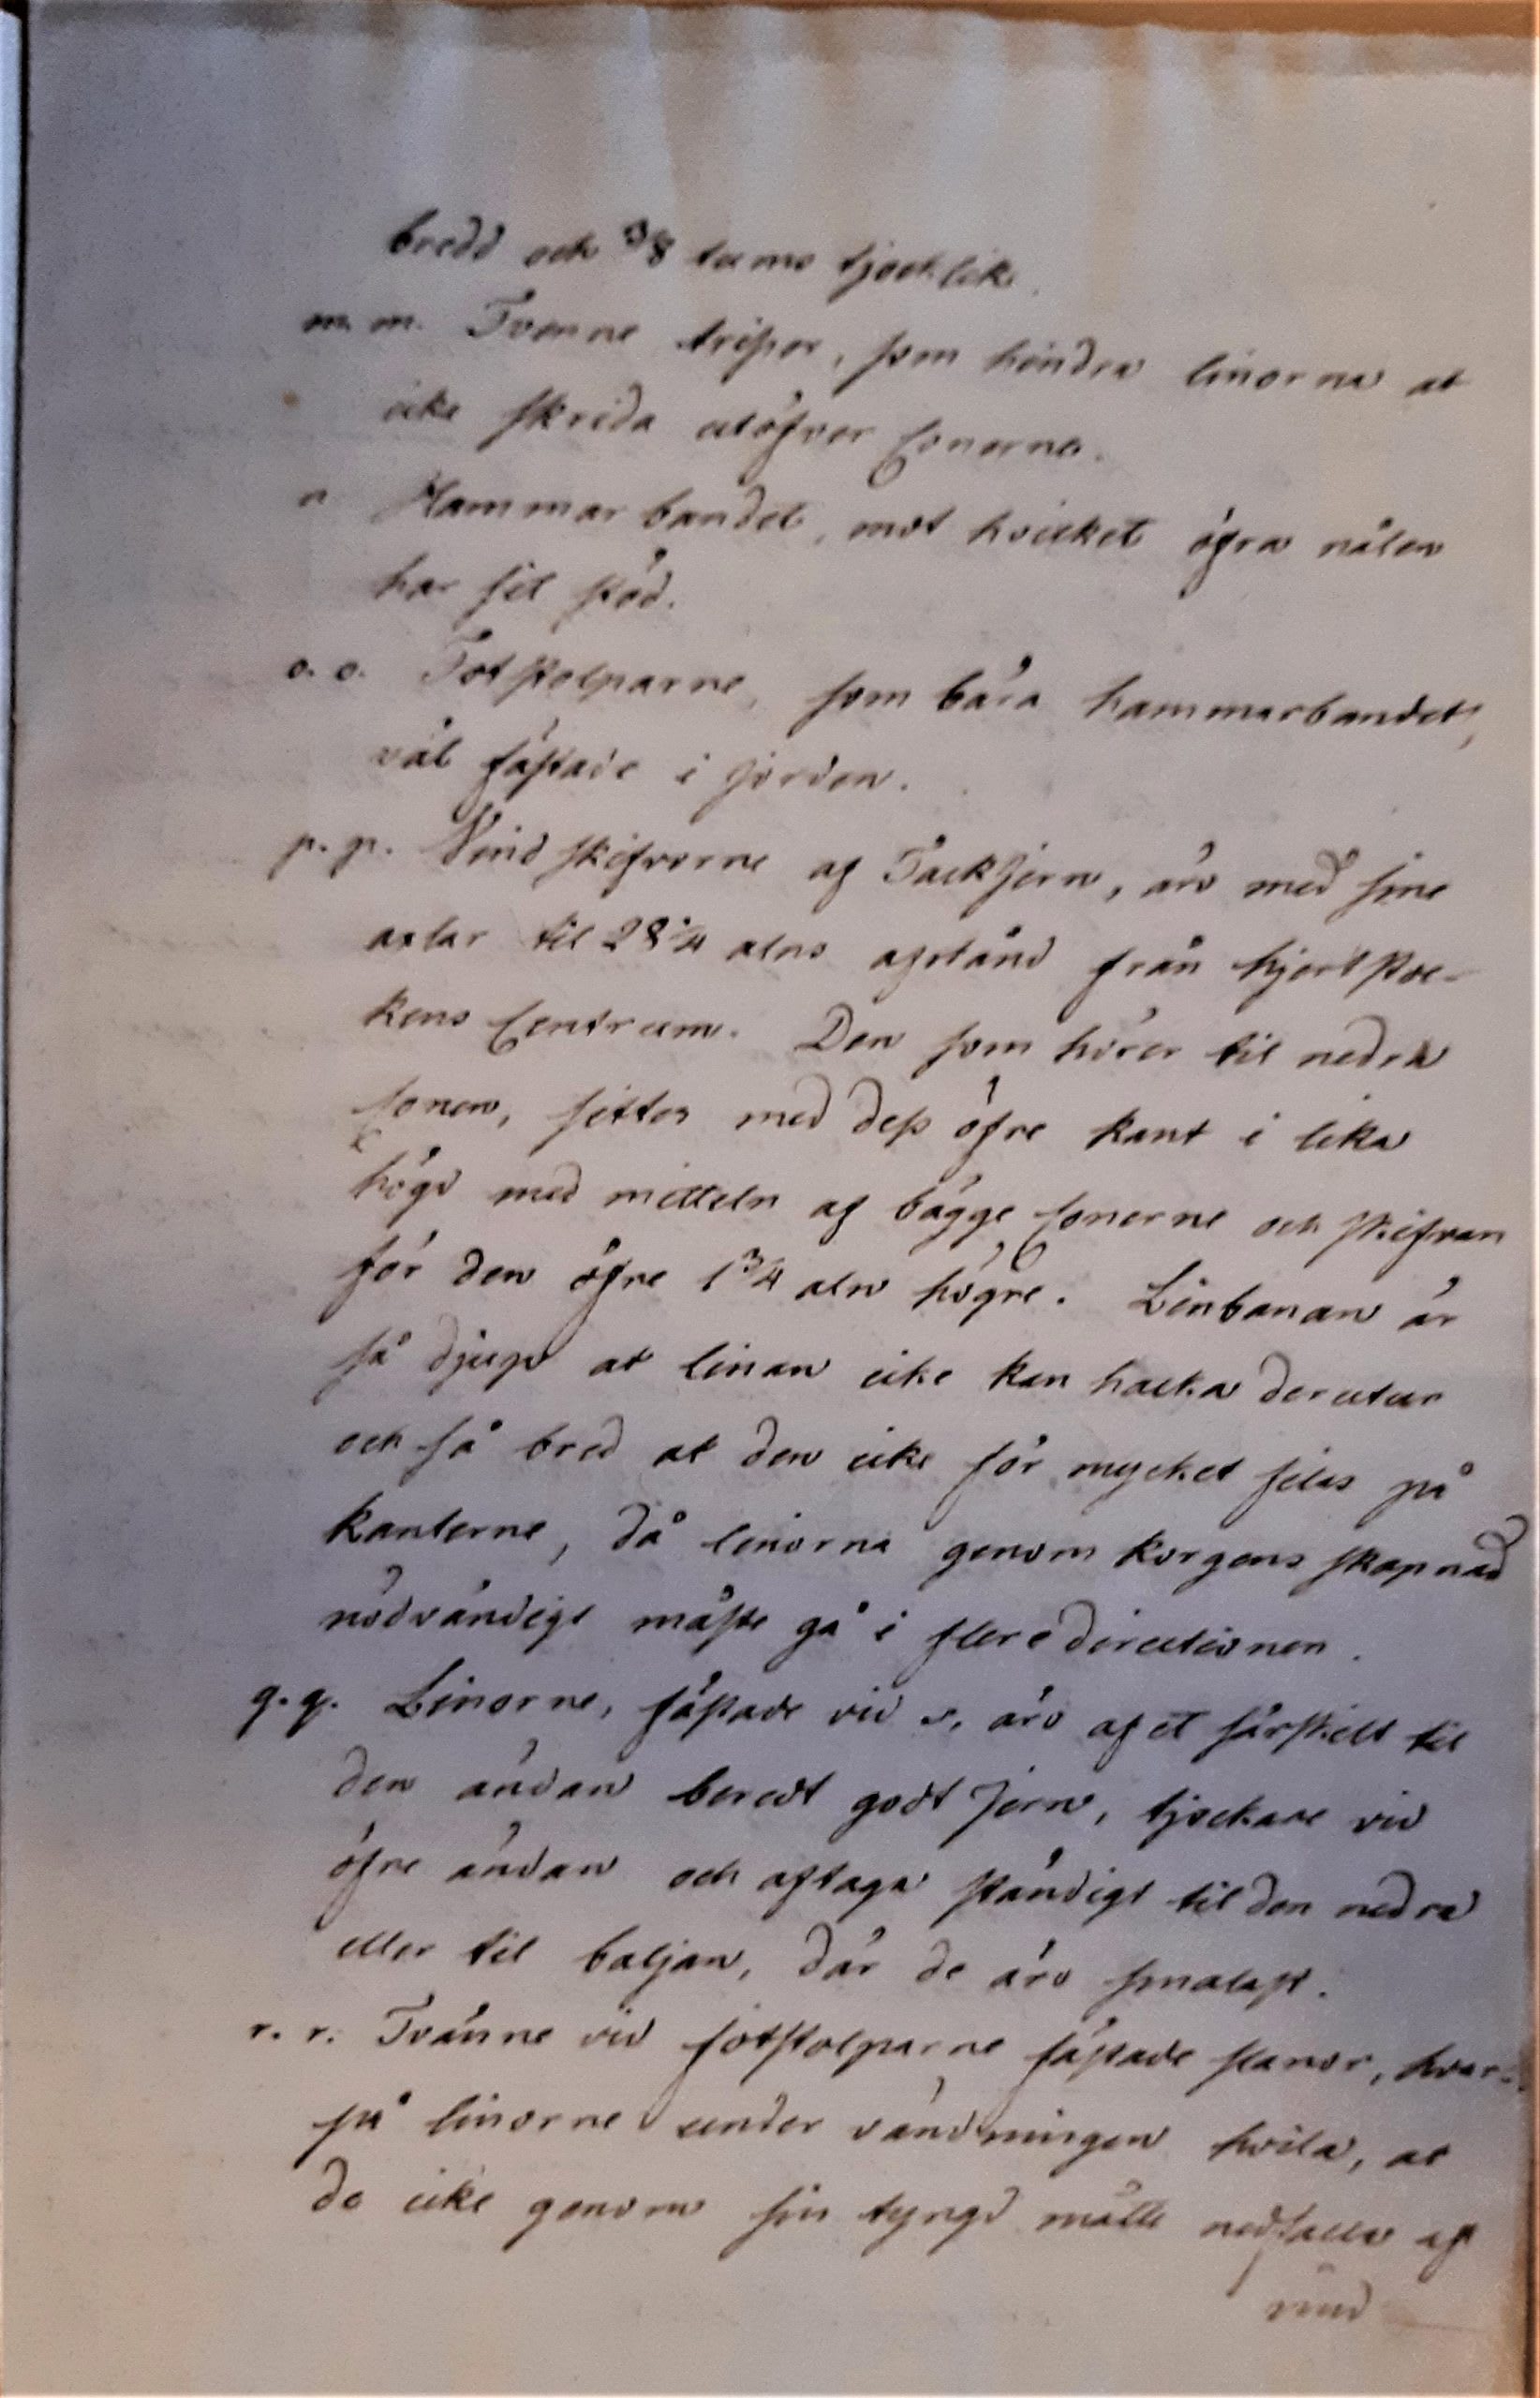 bredd och 3/8 tums tjocklek.
m. m. Tvenne trissor, som hindra linorna at
icke skrida utöfver Conerne.
n Hammarbandet, mot hvilket öfra nålen
har sit stöd.
o. o. Fotstolparne, som bära hammarbandet,
väl fästade i jorden.
p. p. Vindskifvorne af Tackjern, äro med sine
axlar til 28 1/4 alns afstånd från hjertstoc-
kens Centrum. Den som hörer til nedra
Conen, sittes med dess öfre kant i lika
högd med mitteln af bägge Conerne och skifvan
för den öfre 1 3/4 aln högre. Linbanan är
så djup at linan icke kan hacka derutur
och så bred at den icke för mycket filas på
kanterne, då linorna genom korgens skapnad
nödvändigt måste gå i flere directioner.
q. q. Linorne, fästade vid v, äro af et särskilt til
den ändan beredt godt Jern, tjockare vid
öfre ändan och aftaga ständigt til den nedra
eller til baljan, där de äro smalast.
r. r. Tvänne vid fotstolparne fästade stänor, hvar-
på linorne under vändningen hvila, at
de icke genom sin tyngd måtte nedfalla af
vind